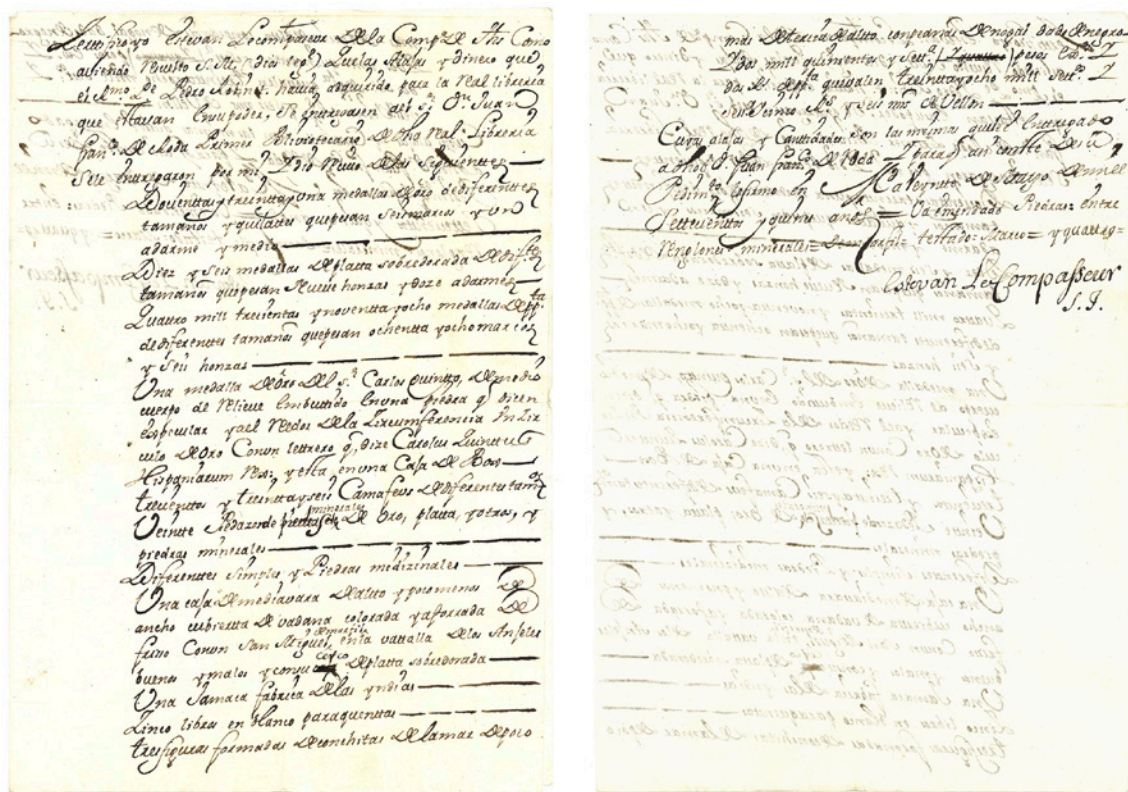 Certifico yo Estevan Lecompaseur de la Comp.ª de Jhs Como
aviendo resuelto S. M. (dios le g.e) Que las Alajas y dinero que
el R.mo P.e Pedro Robinet havia adquirido para la Real libreria
que estavan en su poder, se entregasen al S.r D.n Juan
fran.co de Roda Primer Bibliotecario de dha Real Libreria
Se le entregaron por mi, y dio recivo de las siguientes
Docientas y treinta y una medallas de oro de diferentes
tamaños y quilates que pesan seis marcos y un
adarme y medio
Diez y seis medallas de platta sobredorada de difte.s
tamaños que pesan Nueve honzas y doze adarmes
Quattro mill trecientas y noventta y ocho medallas de pp.ta
de diferentes tamaños que pesan ochentta y ocho marcos
y seis honzas
Una medalla de oro del S.r Carlos quintto, de medio
cuerpo de relieve embuttido en una piedra q dicen
especular y al redor de la Zircumferencia un Zir
culo de oro Con un lettrero q dize Carolus Quinttus
Hispaniarum Rex; y esta en una Caja de Box
trecientos y treinta y seis Camafeos de diferentes tam.os
minerales
Veintte Pedazos de de oro, platta, y otros, y
piedras minerales
Diferenttes simples y Piedras medizinales
Una caja de media vara de altto y poco menos de
ancho cubiertta de vadana colorada y aforrada de
friso Con un San Miguel en la vattalla de los Anjeles
buenos y malos y con su cerco de platta sobredorada
Una Jamaca fabrica de las yndias
Zinco libros en blanco para quenttas
tres figuras formadas de conchitas de la mar de poco
mas de tercia de altto con peanas de nogal dadas de negro
Y dos mill quinientos y sett.a pesos
dos R.s de pp.ta que valen treinta y ocho mill sett.os Y
seis R.s y seis mrs de Vellon
Cuyas alajas y Cantidades son las mismas que he entregado
a dho S.r D. Juan fran.co de Roda Y para q conste de su
Pedim.to lo firmo en M.d a Veyntte de Mayo de mil
Settecientos y quince años = Va enmendado Piedras= entre
Renglones= minerales= testado= Marco= y quattro=
Estevan Le Compasseur
S. J.